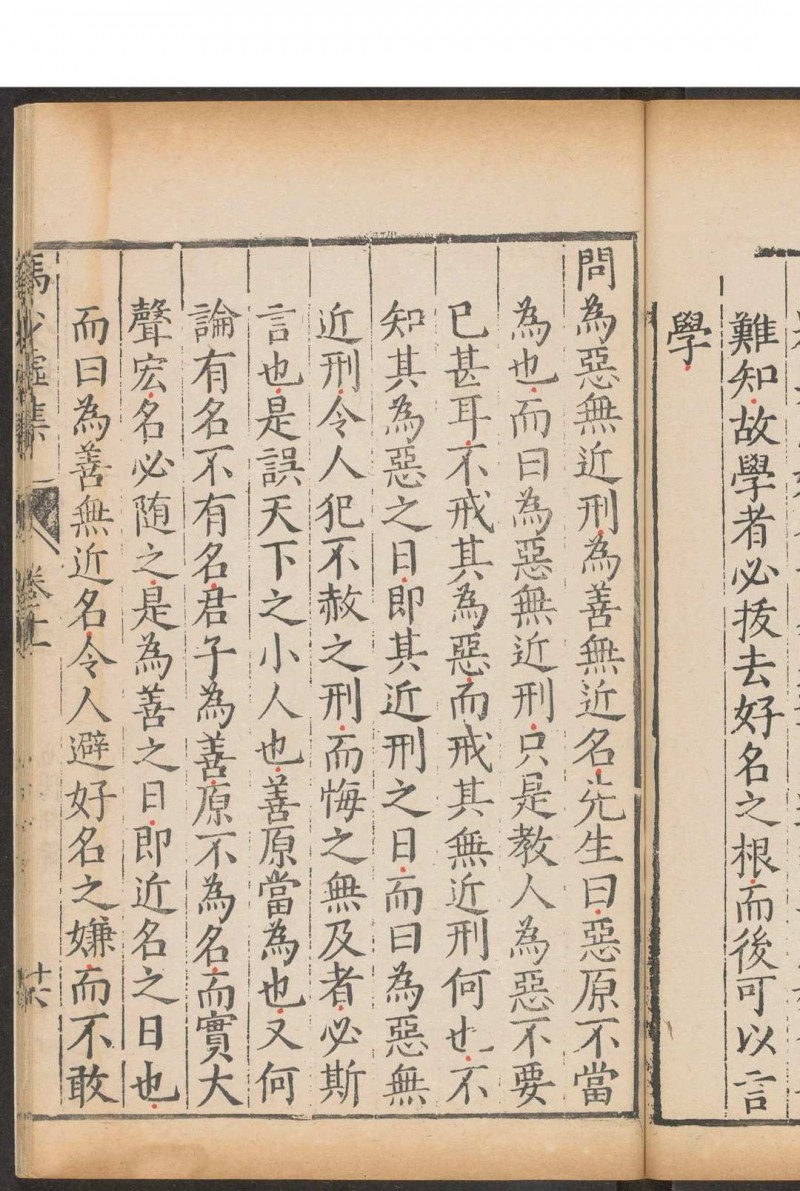 難知故學者必拔去好名之根而後可以言
學
問為惡無近刑為善無近名先生曰惡原不當
為也而曰為惡無近刑只是教人為惡不要
已甚耳不戒其為惡而戒其無近刑何也不
知其為惡之日即其近刑之日而曰為惡無
近刑令人犯不赦之刑而悔之無及者必斯
言也是誤天下之小人也善原當為也又何
論有名不有名君子為善原不為名而實大
聲宏名必随之是為善之日即近名之日也
而曰為善無近名令人避好名之嫌而不敢
馮少墟集
卷
十六